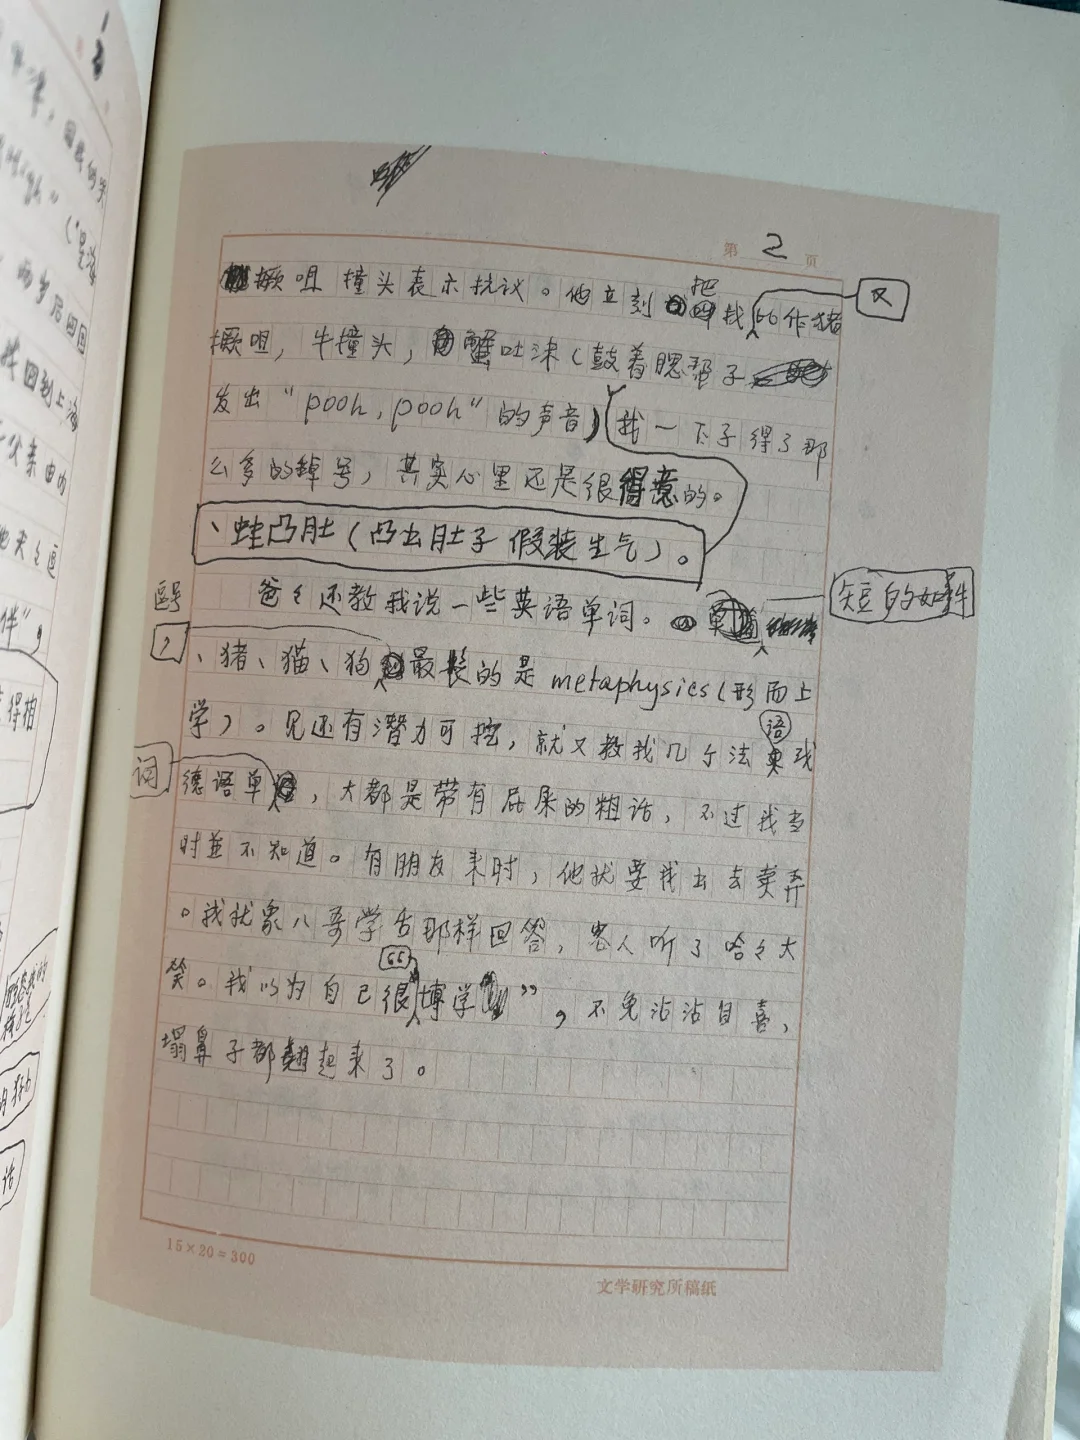 第 2 页
撅咀撞头表示抗议。他立刻把我叉66作猪
撅咀,牛撞头,蟹吐沫(鼓着腮帮子
发出“pooh,pooh”的声音)我一下子得了那
么多的绰号,其实心里还是很得意的。
、蛙凸肚(凸出肚子假装生气)。
爸々还教我说一些英语单词。
短的如牛
逗号
,
、猪、猫、狗最长的是metaphysics(形而上
学)。见还有潜力可挖,就又教我几个法语或
德语单词,大都是带有屁屎的粗话,不过我当
时並不知道。有朋友来时,他就要我出去卖弄
。我就象八哥学舌那样回答,客人听了哈々大
笑。我以为自己很“博学”,不免沾沾自喜,
塌鼻子都翘起来了。
15×20=300
文学研究所稿纸